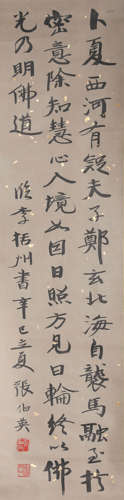 卜夏西河有疑夫子鄭玄北海自襲馬融至於
密意除知慧心入境如因日照方見日輪終以佛
光乃明佛道 臨李括州書 辛巳立夏 張伯英